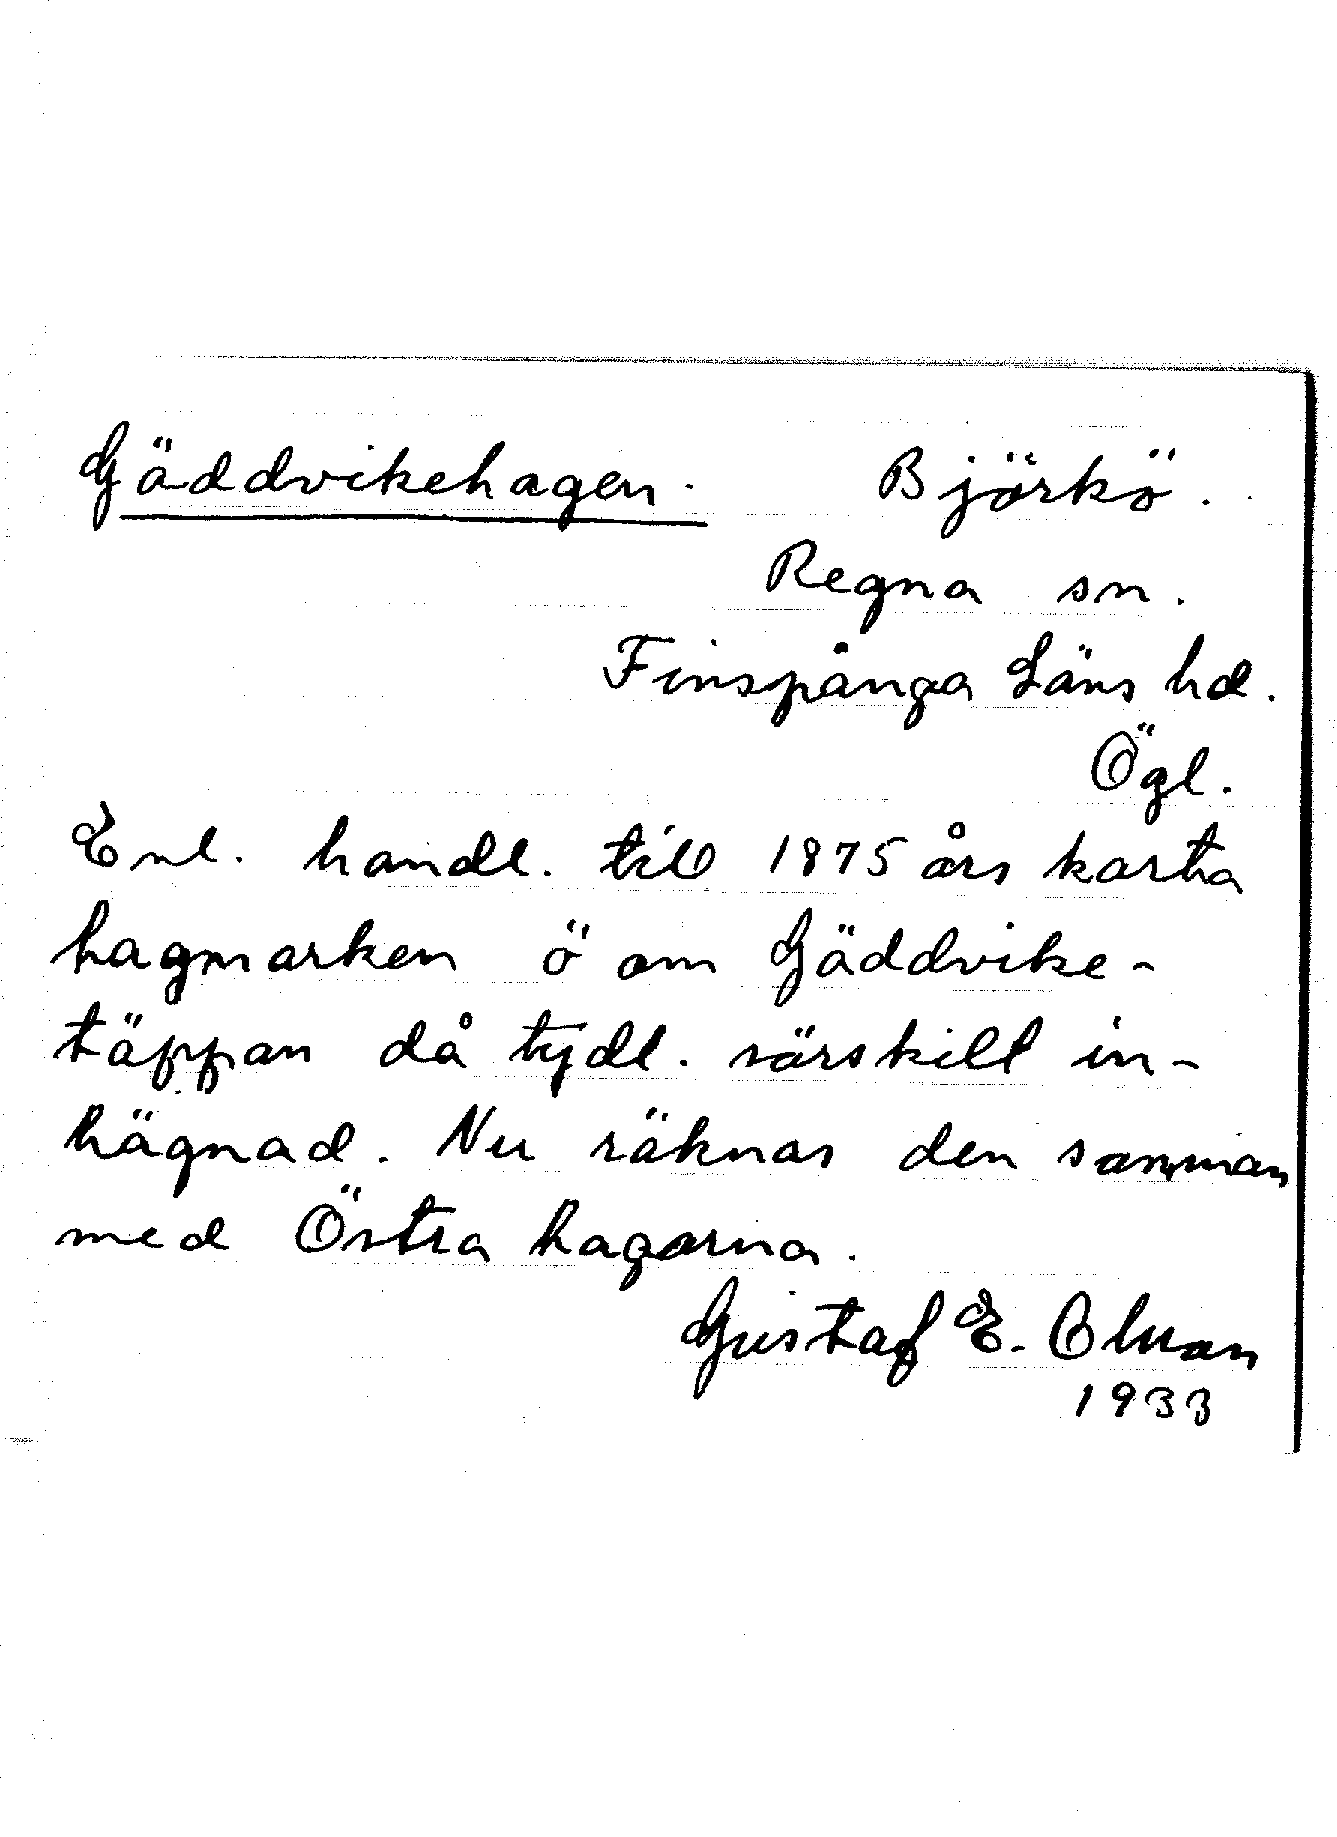 Gäddvikehagen. Björkö.
Regna sn.
Finspånga Läns hd.
Ögl.
Enl. handl. till 1875 års karta
hagmarken ö om Gäddvike-
täppan då tydl. särskilt in-
hägnad. Nu räknas den samman
med Östra hagarna.
Gustaf E.
1933